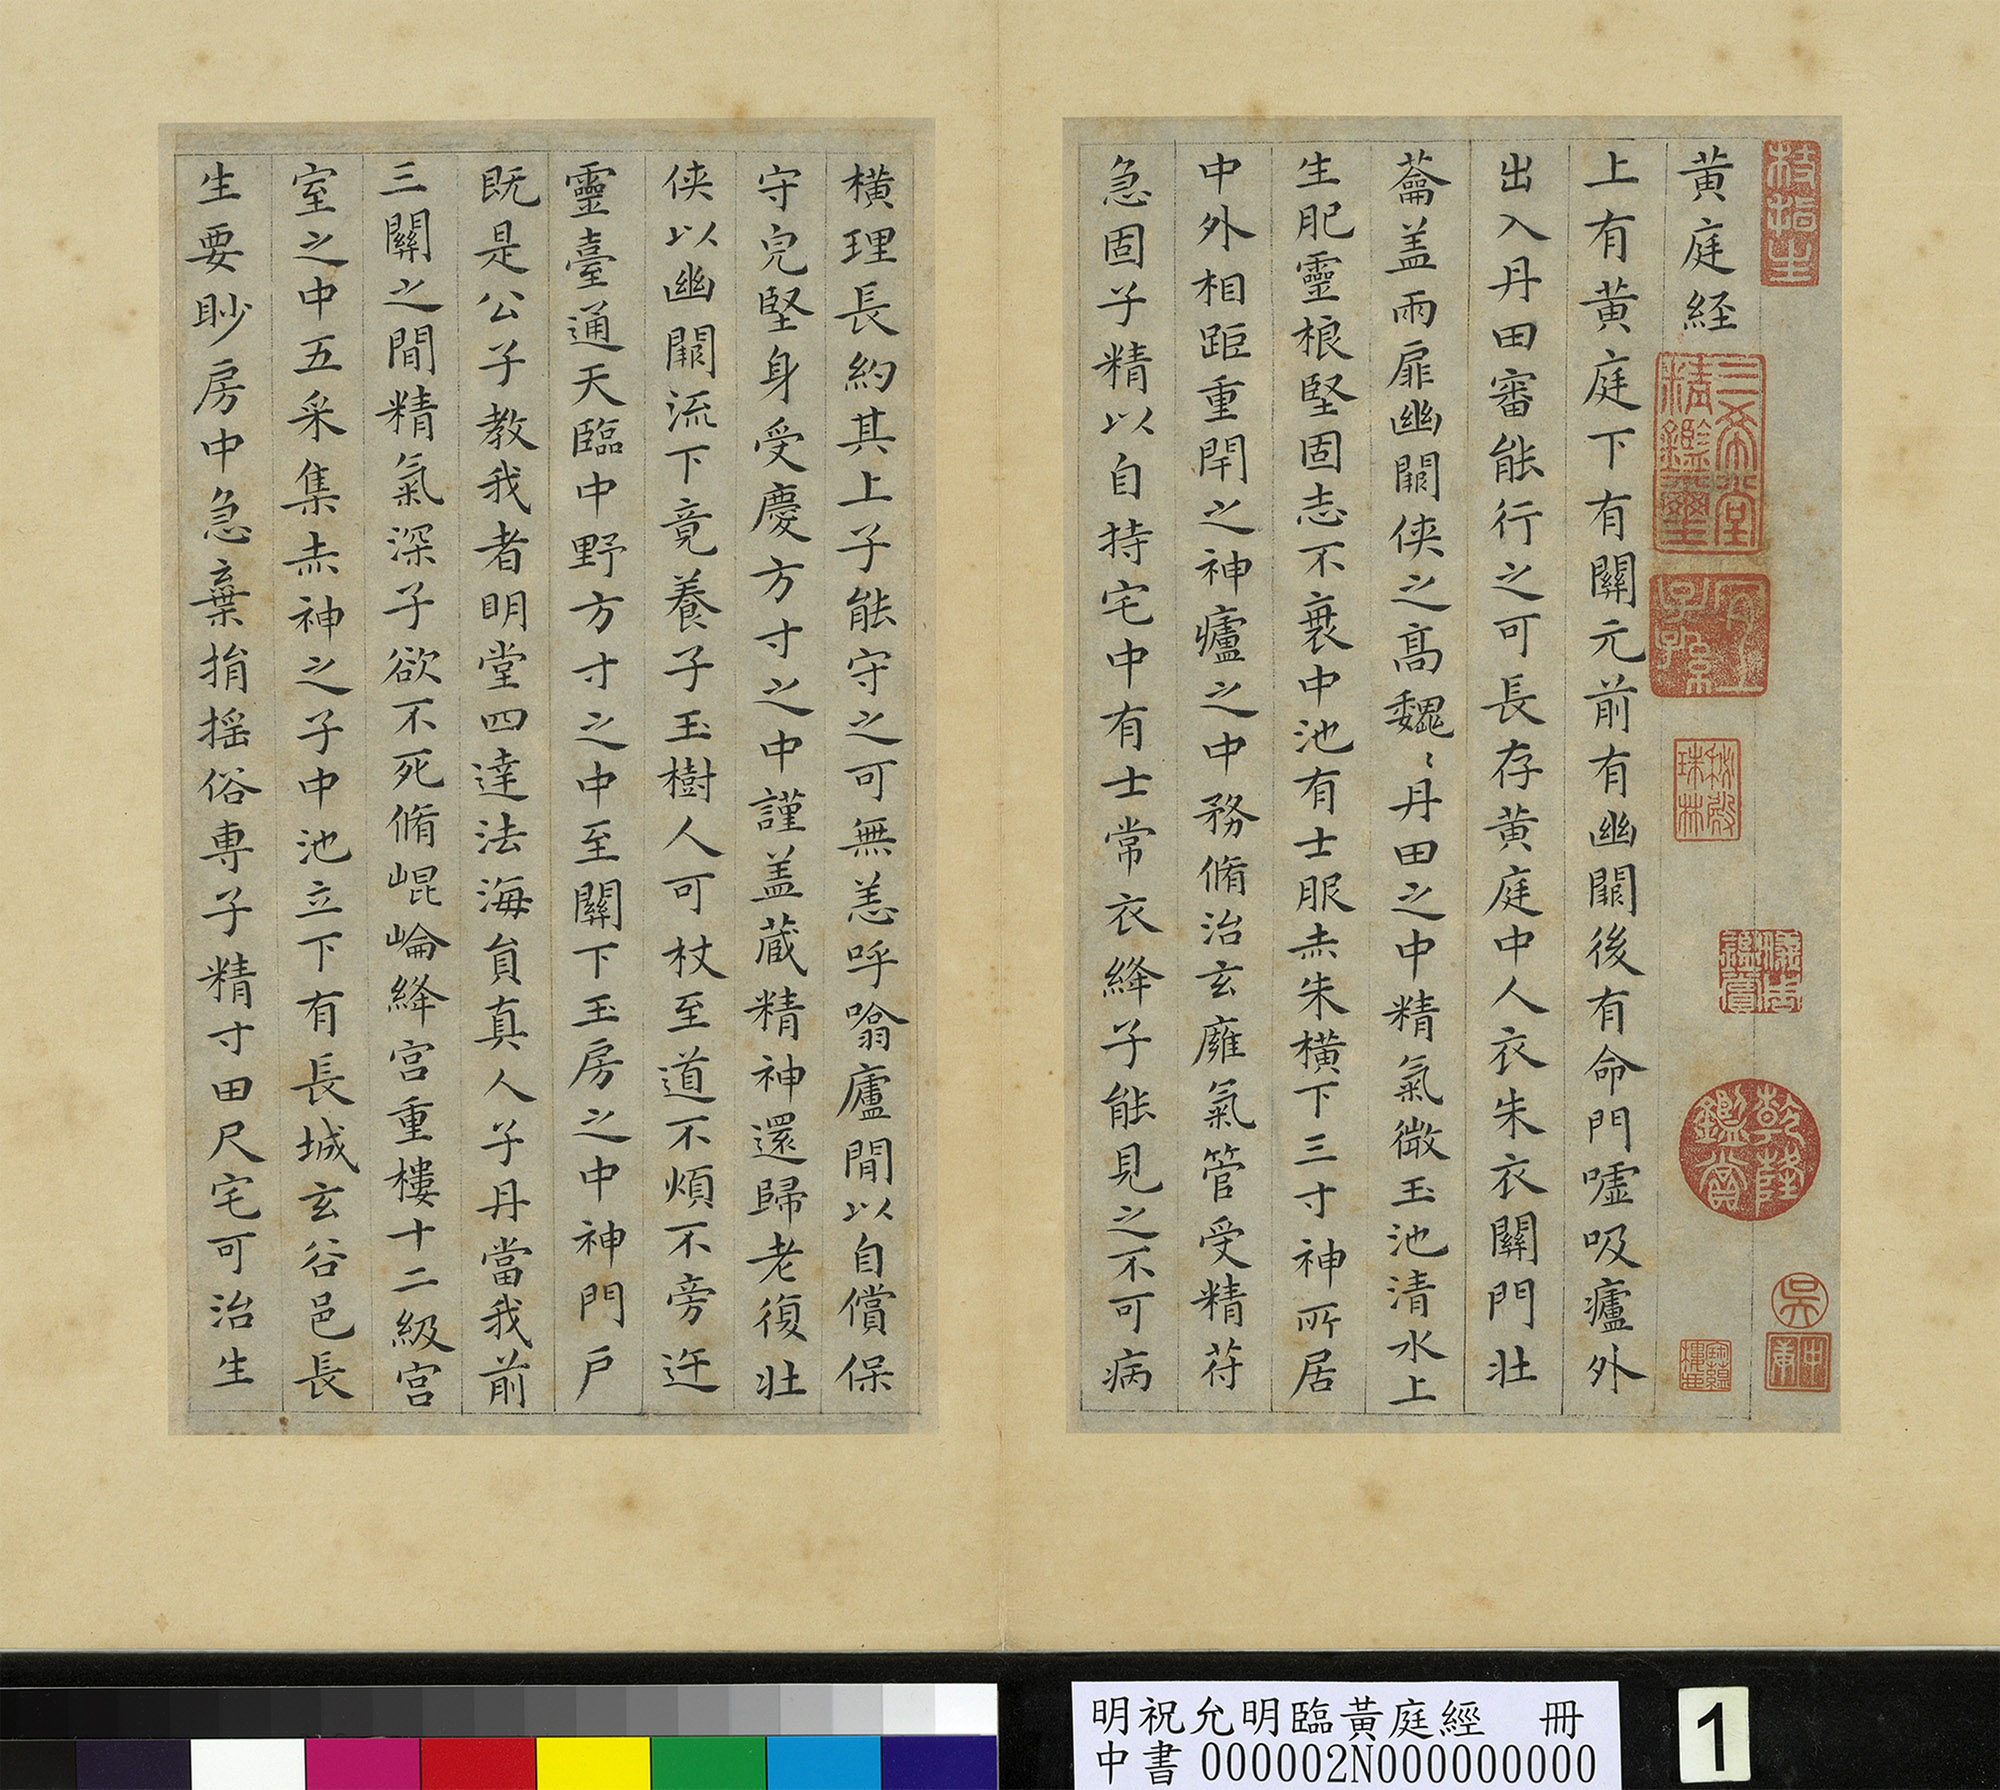 黄庭経
上有黄庭下有關元前有幽闕後有命門嘘吸廬外
出入丹田審能行之可長存黄庭中人衣朱衣關門壯
蘥盖兩扉幽闕侠之髙魏〻丹田之中精氣微玉池清水上
生肥靈根堅固志不衰中池有士服赤朱横下三寸神所居
中外相距重閇之神廬之中務脩治玄㢕氣管受精苻
急固子精以自持宅中有士常衣絳子能見之不可病
横理長約其上子能守之可無恙呼噏廬間以自償保
守皃堅身受慶方寸之中謹盖藏精神還歸老復壯
侠以幽闕流下竟養子玉樹人可杖至道不煩不旁迕
靈臺通天臨中野方寸之中至關下玉房之中神門戶
既是公子教我者明堂四達法海員真人子丹當我前
三關之間精氣深子欲不死脩崐崘絳宮重樓十二級宮
室之中五采集赤神之子中池立下有長城玄谷邑長
生要眇房中急棄捐摇俗専子精寸田尺宅可治生
枝指生
三希堂精鑑璽
宜子孫
秋壑珠林
乾隆鑑賞
吳
明祝允明臨黃庭經 冊
中書 000002N000000000
1